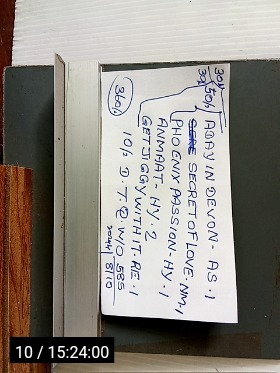 30/4
30/2 50/4 A DAY IN DEVON - AS. 1
SECRET OF LOVE. NM. 1
PHOENIX PASSION - HY. 1
ANMAAT - HY. 2
GET JIGGY WITH IT. RE. 1
10/- D. T. @ W/O 585
8/10
360/-
10 / 15:24:00